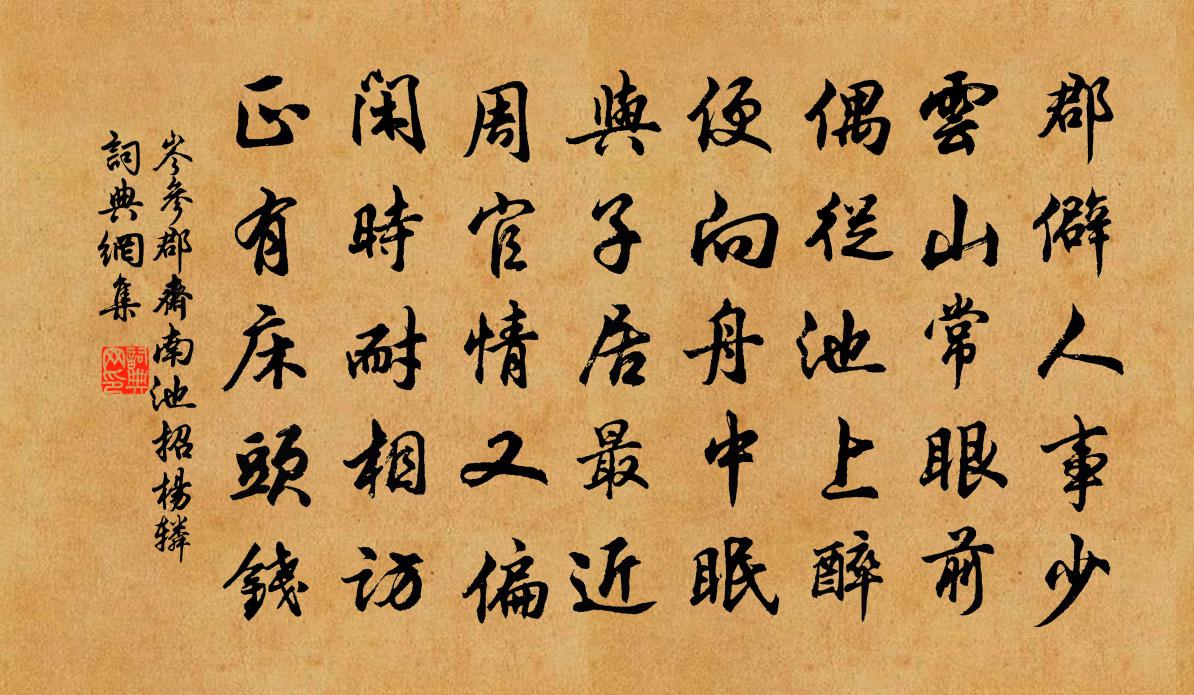 郡僻人事少
雲山常眼前
偶從池上醉
便向舟中眠
與子居最近
周官情又偏
閑時耐相訪
正有床頭錢
岑參郡齋南池招楊轔
詞典網集
詞典網印